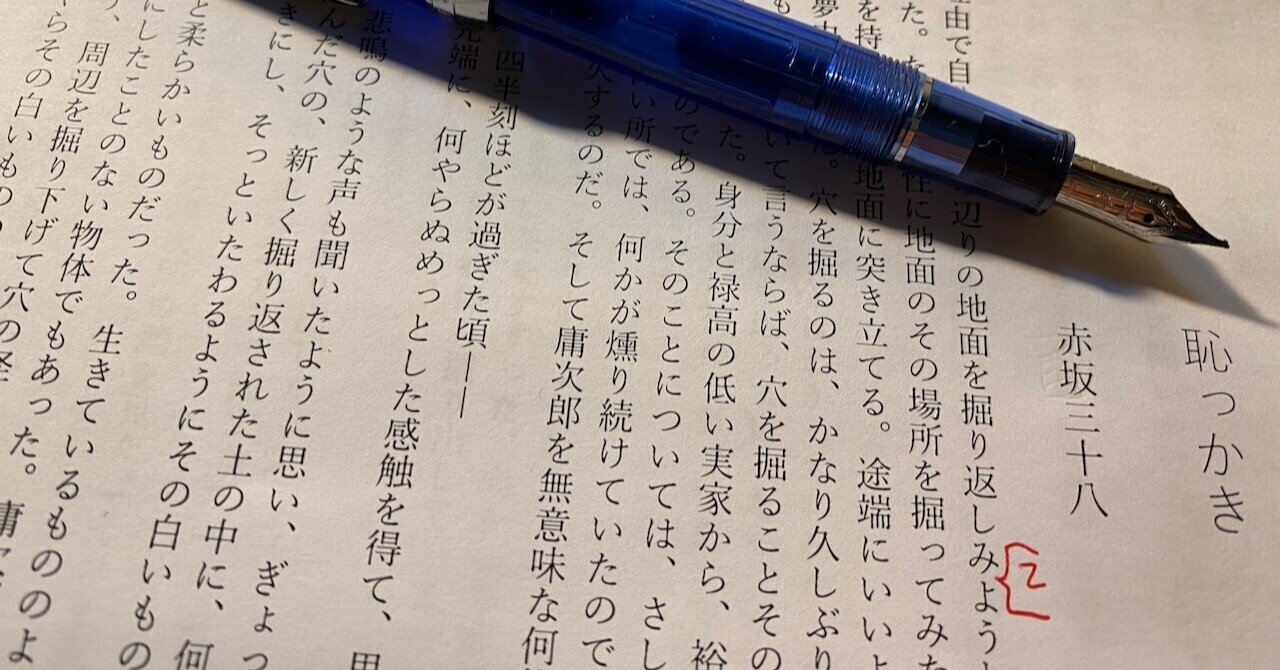 恥っかき
赤坂三十八
由で自 辺りの地面を掘り返しみよう
て
た。た 性に地面のその場所を掘ってみた
を持 地面に突き立てる。途端にいいよ
夢中 た。穴を掘るのは、かなり久しぶり
も いて言うならば、穴を掘ることその
た。身分と禄高の低い実家から、裕
のである。そのことについては、さし
い所では、何かが燻り続けていたので
するのだ。そして庸次郎を無意味な何
四半刻ほどが過ぎた頃――
先端に、何やらぬめっとした感触を得て、思
悲鳴のような声も聞いたように思い、ぎょっ
んだ穴の、新しく掘り返された土の中に、何
きにし、そっといたわるようにその白いもの
と柔らかいものだった。生きているもののよ
にしたことのない物体でもあった。庸
、周辺を掘り下げて穴の
らその白いもの